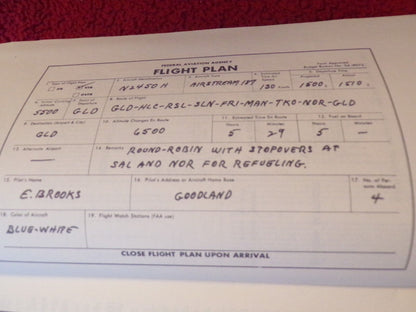 FEDERAL AVIATION AGENCY
FLIGHT PLAN
Form Approved
1. Type of Flight Plan
VFR
2. Aircraft Identification
N2450H
3. Aircraft Type
AIRSTREAM 187
130 Knots
5. Departure Time
1500
1510
5500
GLD
8. Route of Flight
GLD-HLC-RSL-SLN-FRI-MAN-TKO-NOR-GLD
9. Destination (Airport & City)
GLD
10. Altitude Changes En Route
6500
11. Estimated Time En Route
Hours 5
Minutes 29
12. Fuel on Board
Hours 5
Minutes —
13. Alternate Airport
—
14. Remarks
ROUND-ROBIN WITH STOPOVERS AT
SAL AND NOR FOR REFUELING.
15. Pilot's Name
E. BROOKS
16. Pilot's Address or Aircraft Home Base
GOODLAND
17. No. of Persons Aboard
4
18. Color of Aircraft
BLUE-WHITE
19. Flight Watch Stations (FAA use)
CLOSE FLIGHT PLAN UPON ARRIVAL